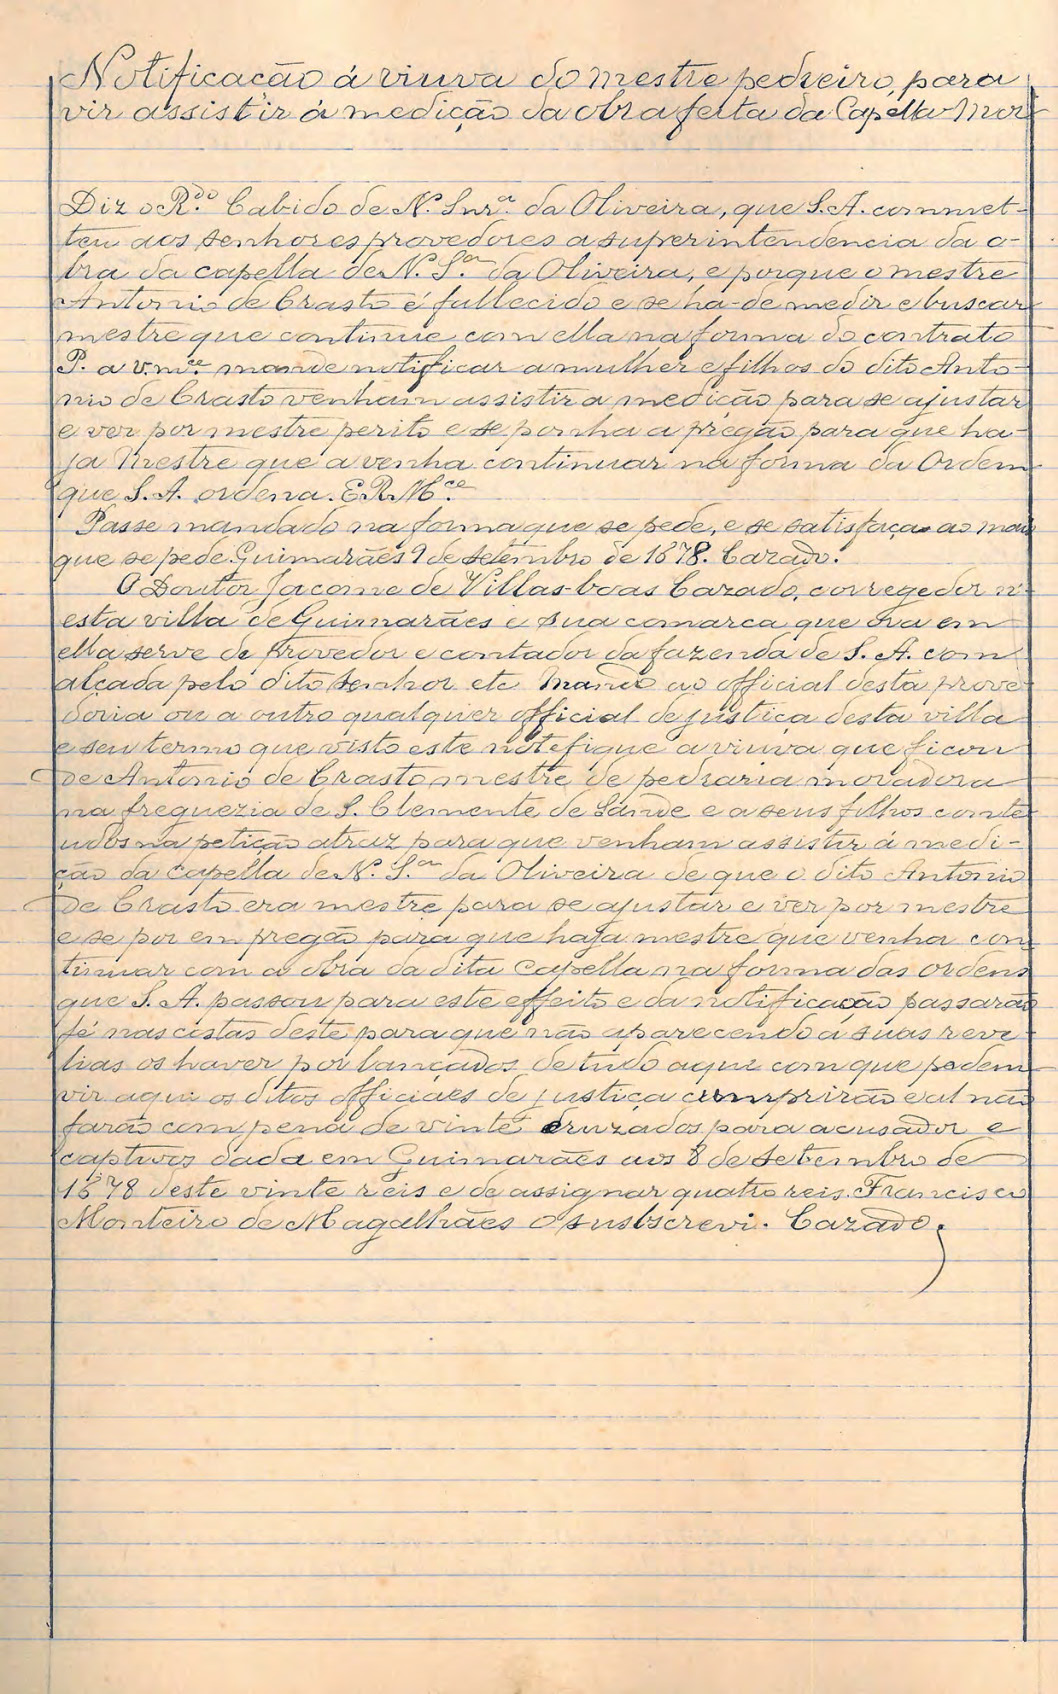 Notificação á viuva do mestre pedreiro, para
vir assistir á medição da obra feita da Capella-Mor
Diz o R.do Cabido de N. Snr.a da Oliveira, que S. A. commet-
teu aos senhores provedores a superintendencia da o-
bra da capella de N. S.ra da Oliveira, e porque o mestre
Antonio de Crasto é fallecido e se ha-de medir e buscar
mestre que continue com ella na forma do contrato
P. a v. m.ce mande notificar a mulher e filhos do dito Anto-
nio de Crasto venham assistir a medição para se ajustar
e ver por mestre perito e se ponha a pregão para que ha-
ja mestre que a venha continuar na forma da Ordem
que S. A. ordena. E. R. M.ce
Passe mandado na forma que se pede, e se satisfaça ao mais
que se pede. Guimarães 9 de setembro de 1678. Cazado.
O Doutor Jacome de Villas-boas Cazado, corregedor n'
esta villa de Guimarães e sua comarca que ora em
ella serve de provedor e contador da fazenda de S. A. com
alçada pelo dito senhor etc Mando ao official desta prove
doria ou a outro qualquer official de justiça desta villa
e seu termo que visto este notefique a viuva que ficou
de Antonio de Crasto mestre de pedraria moradora
na freguezia de S. Clemente de Sande e a seus filhos conte
udos na petição atraz para que venham assistir á medi-
ção da capella de N. S.ra da Oliveira de que o dito Antonio
de Crasto era mestre para se ajustar e ver por mestre
e se por em pregão para que haja mestre que venha con
tinuar com a obra da dita capella na forma das ordens
que S. A. passou para este effeito e da notificação passarão
fé nas costas deste para que não aparecendo á suas reve
lias os haver por lançados de tudo aquí com que podem
vir aqui os ditos officiaes de justiça cumprirão e al não
farão com pena de vinte cruzados para acusador e
captivos dada em Guimarães aos 8 de setembro de
1678 deste vinte reis e de assignar quatro reis. Francisco
Monteiro de Magalhães o subscrevi. Cazado.